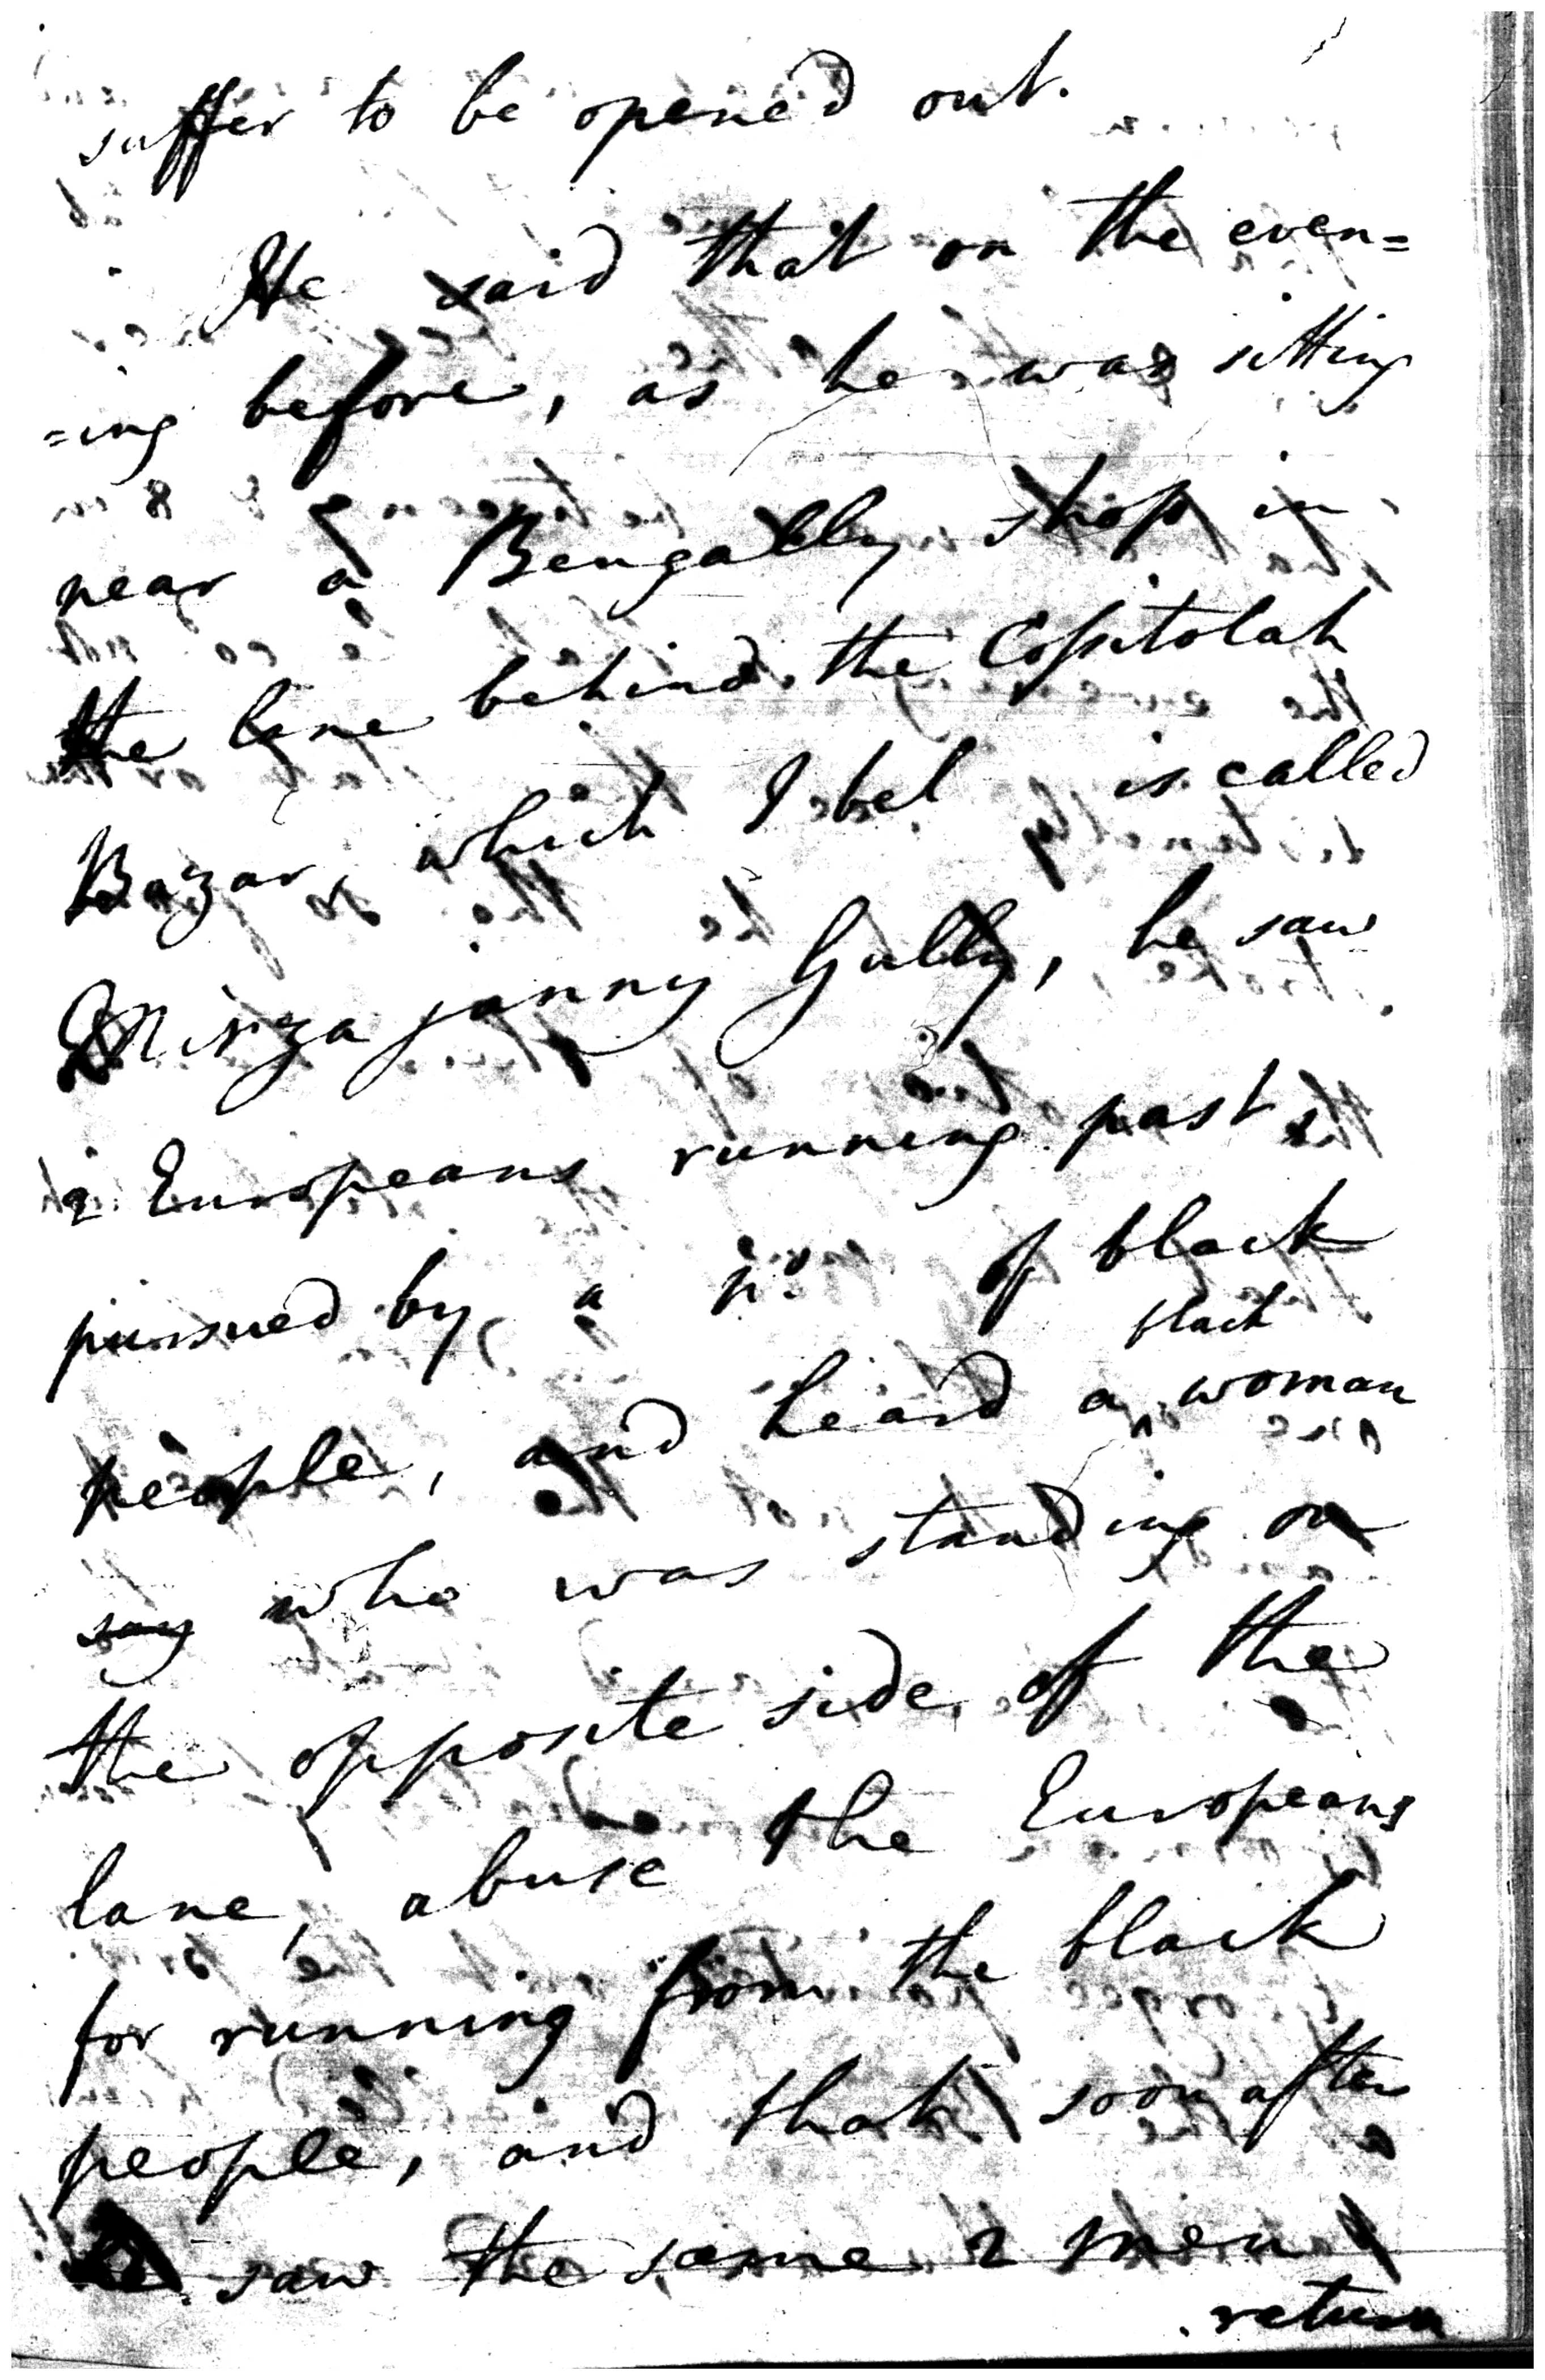 suffer to be opened out.
He said that on the even=
=ing before, as he was sitting
near a Bengally shop in
the lane behind the Cossitolah
Bazar, which I bel is called
Mirza janny Gully, he saw
2 Europeans running past,
pursued by a no. of black
people, and heard a black woman
say who was standing on
the opposite side of the
lane, abuse the Europeans
for running from the black
people, and that soon after
he saw the same 2 men
return